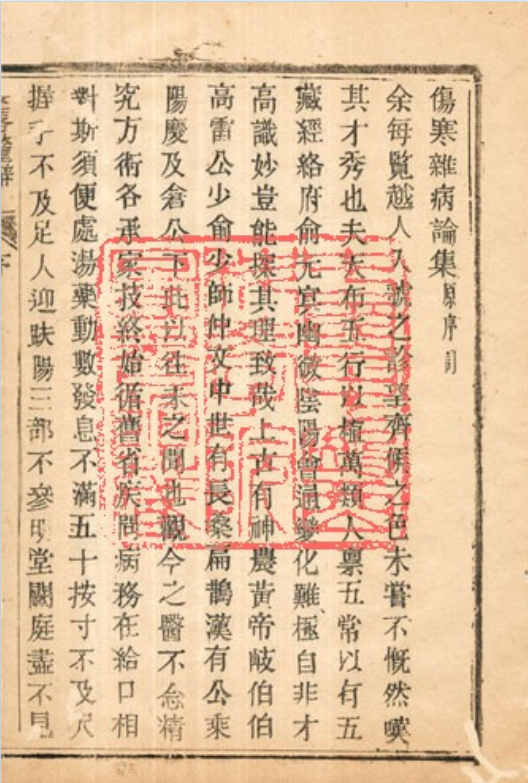 傷寒雜病論集原序
余每覧越人入虢之診望齊候之色未嘗不慨然嘆
其才秀也夫天布五行以植萬類人禀五常以有五
藏經絡府俞
幽微陰陽會通變化難極自非才
高識妙豈能探其理致哉上古有神農黃帝岐伯伯
高雷公少俞少師仲文中世有長桑扁鵲漢有公乘
陽慶及倉公下此以往未之聞也觀今之醫不念精
究方術各承家技終始循舊省疾問病務在給口相
對斯須便處湯藥動數發息不滿五十按寸不及尺
握手不及足人迎趺陽三部不參明堂闕庭盡不見